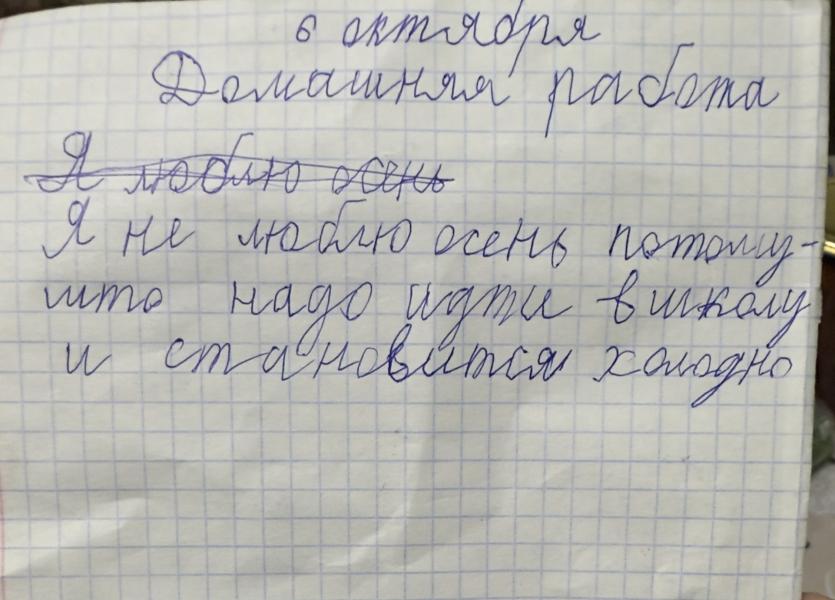 6 октября
Домашняя работа
Я люблю осень
Я не люблю осень потому-
што надо идти в школу
и становится холодно